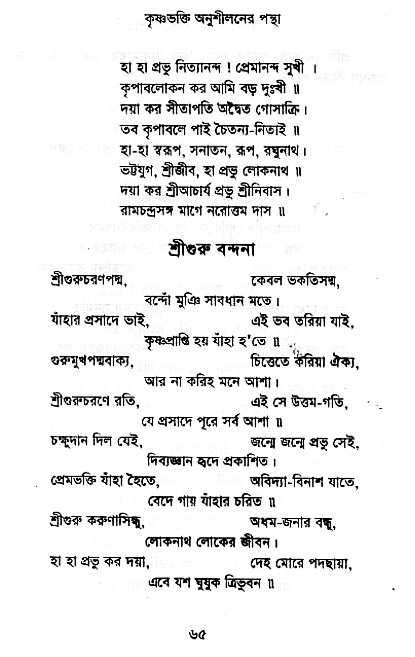 কৃষ্ণভক্তি অনুশীলনের পন্থা
হা হা প্রভু নিত্যানন্দ ! প্রেমানন্দ সুখী ।
কৃপাবলোকন কর আমি বড় দুঃখী ॥
দয়া কর সীতাপতি অদ্বৈত গোসাঞি ।
তব কৃপাবলে পাই চৈতন্য-নিতাই ॥
হা-হা স্বরূপ, সনাতন, রূপ, রঘুনাথ ।
ভট্টযুগ, শ্রীজীব, হা প্রভু লোকনাথ ॥
দয়া কর শ্রীআচার্য প্রভু শ্রীনিবাস ।
রামচন্দ্রসঙ্গ মাগে নরোত্তম দাস ॥
শ্রীগুরু বন্দনা
শ্রীগুরুচরণপদ্ম, কেবল ভকতিসদ্ম,
বন্দোঁ মুঞি সাবধান মতে ।
যাঁহার প্রসাদে ভাই, এই ভব তরিয়া যাই,
কৃষ্ণপ্রাপ্তি হয় যাঁহা হ'তে ॥
গুরুমুখপদ্মবাক্য, চিত্তেতে করিয়া ঐক্য,
আর না করিহ মনে আশা ।
শ্রীগুরুচরণে রতি, এই সে উত্তম-গতি,
যে প্রসাদে পূরে সর্ব আশা ॥
চক্ষুদান দিল যেই, জন্মে জন্মে প্রভু সেই,
দিব্যজ্ঞান হৃদে প্রকাশিত ।
প্রেমভক্তি যাঁহা হৈতে, অবিদ্যা-বিনাশ যাতে,
বেদে গায় যাঁহার চরিত ॥
শ্রীগুরু করুণাসিন্ধু, অধম-জনার বন্ধু,
লোকনাথ লোকের জীবন ।
হা হা প্রভু কর দয়া, দেহ মোরে পদছায়া,
এবে যশ ঘুষুক ত্রিভুবন ॥
৬৫